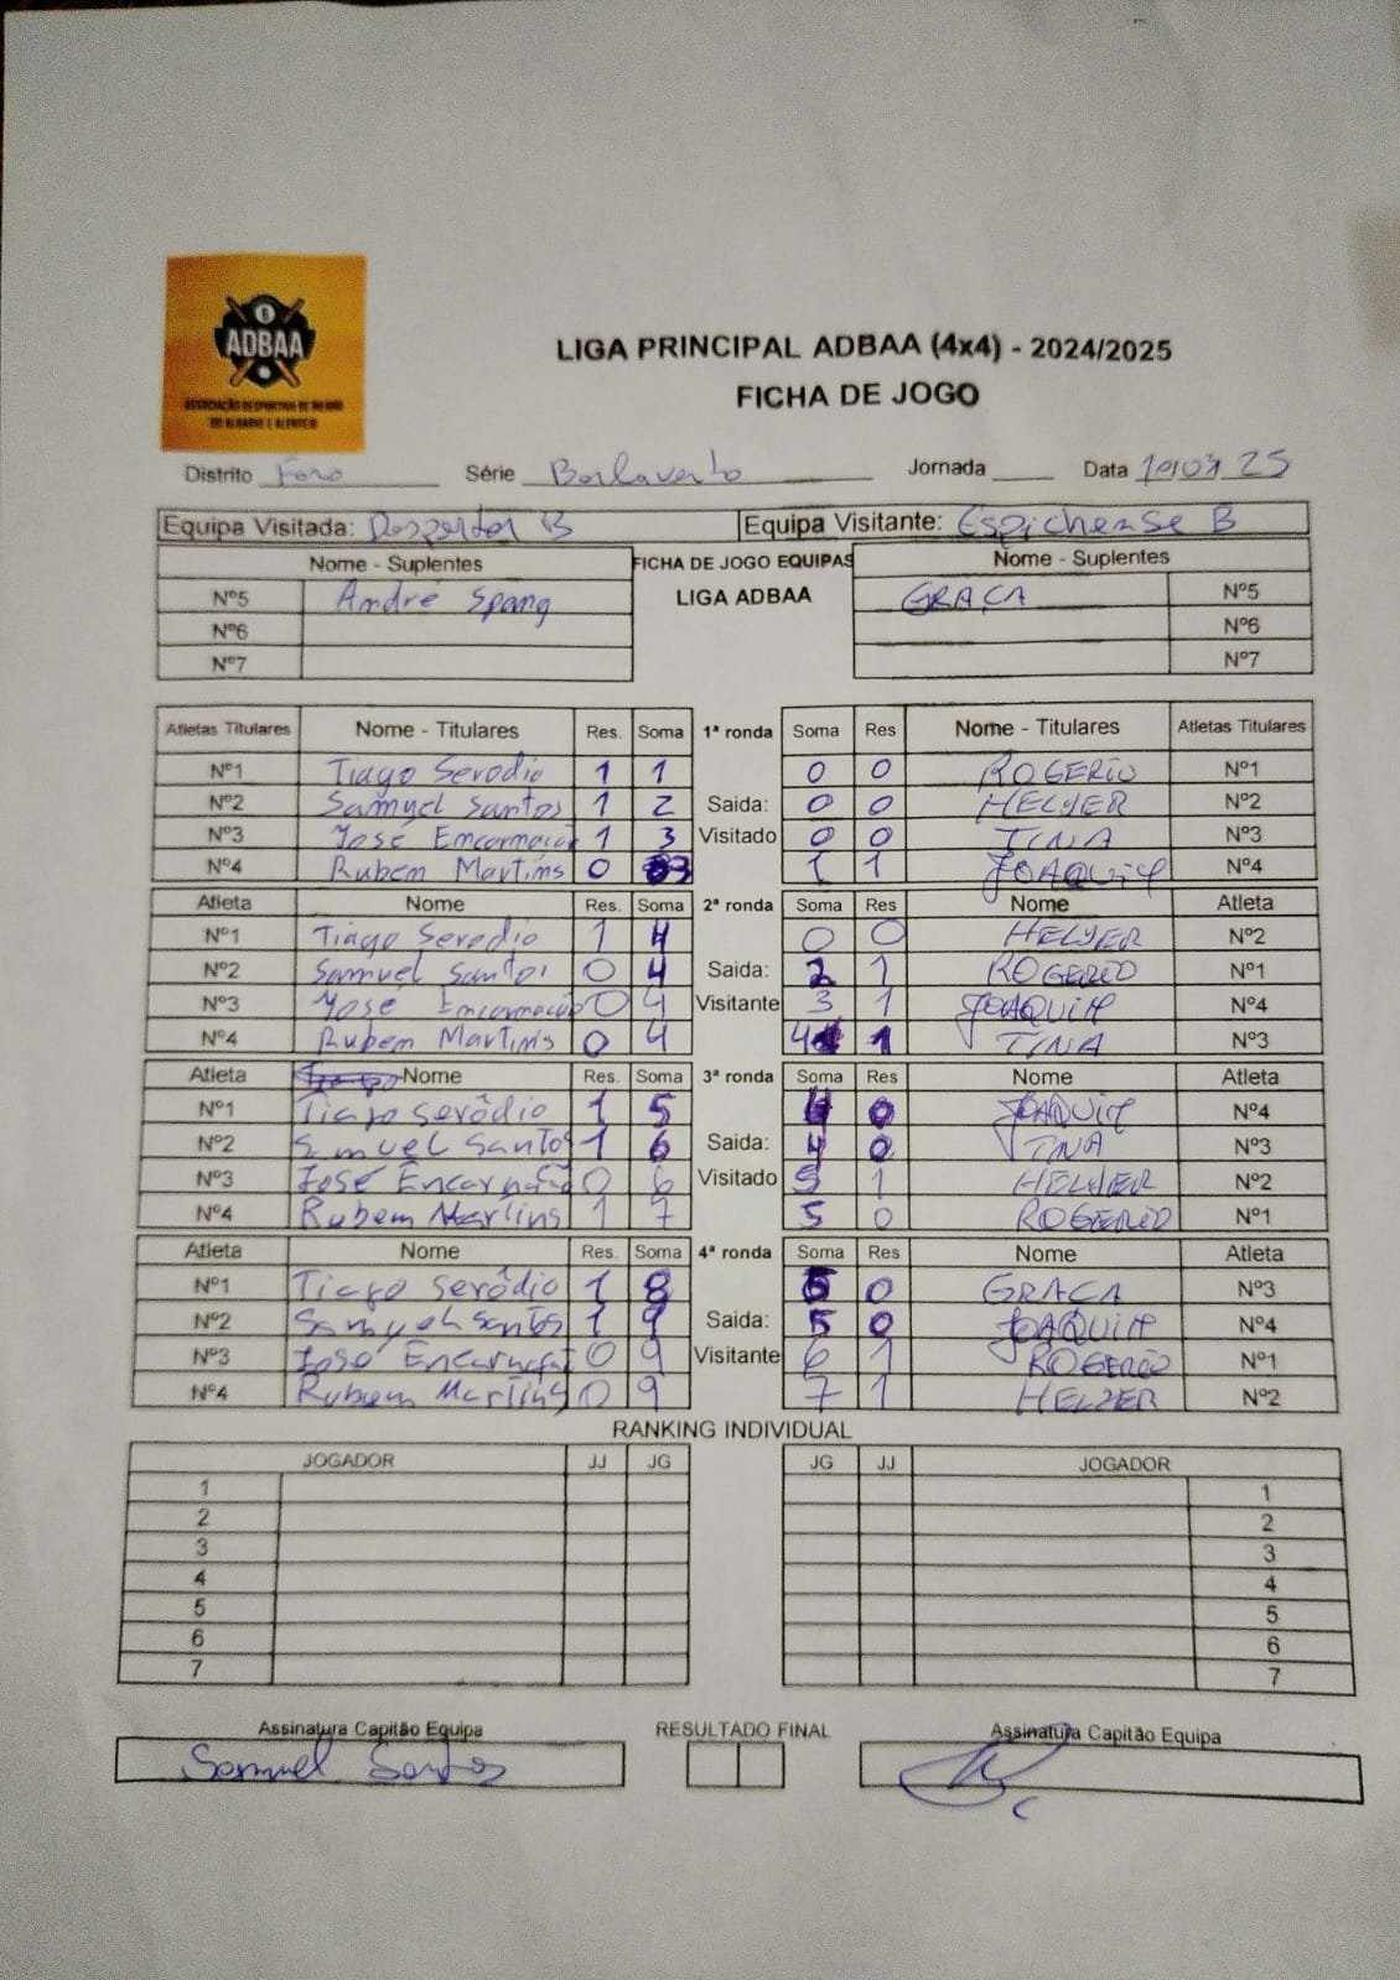 ADBAA
ASSOCIAÇÃO DESPORTIVA DE BILHAR
DO ALGARVE E ALENTEJO
LIGA PRINCIPAL ADBAA (4x4) - 2024/2025
FICHA DE JOGO
Distrito Faro Série Barlavento Jornada Data 25
Equipa Visitada: Despertar B Equipa Visitante: Espichense B
Nome - Suplentes FICHA DE JOGO EQUIPAS Nome - Suplentes
Nº5 André Spang LIGA ADBAA GRAÇA Nº5
Nº6 Nº6
Nº7 Nº7
Atletas Titulares Nome - Titulares Res. Soma 1ª ronda Soma Res Nome - Titulares Atletas Titulares
Nº1 Tiago Serodio 1 1 0 0 ROGERIO Nº1
Nº2 Samuel Santos 1 2 Saida: 0 0 HELDER Nº2
Nº3 José Encarnação 1 3 Visitado 0 0 TINA Nº3
Nº4 Rubem Martins 0 3 1 1 JOAQUIM Nº4
Atleta Nome Res. Soma 2ª ronda Soma Res Nome Atleta
Nº1 Tiago Serodio 1 4 0 0 HELDER Nº2
Nº2 Samuel Santos 0 4 Saida: 2 1 ROGERIO Nº1
Nº3 José Encarnação 0 4 Visitante 3 1 JOAQUIM Nº4
Nº4 Rubem Martins 0 4 4 1 TINA Nº3
Atleta Nome Res. Soma 3ª ronda Soma Res Nome Atleta
Nº1 Tiago Serôdio 1 5 4 0 JOAQUIM Nº4
Nº2 Samuel Santos 1 6 Saida: 4 0 TINA Nº3
Nº3 José Encarnação 0 6 Visitado 5 1 HELDER Nº2
Nº4 Rubem Martins 1 7 5 0 ROGERIO Nº1
Atleta Nome Res. Soma 4ª ronda Soma Res Nome Atleta
Nº1 Tiago Serôdio 1 8 5 0 GRACA Nº3
Nº2 Samuel Santos 1 9 Saida: 5 0 JOAQUIM Nº4
Nº3 José Encarnação 0 9 Visitante 6 1 ROGERIO Nº1
Nº4 Rubem Martins 0 9 7 1 HELDER Nº2
RANKING INDIVIDUAL
JOGADOR JJ JG JG JJ JOGADOR
1 1
2 2
3 3
4 4
5 5
6 6
7 7
Assinatura Capitão Equipa RESULTADO FINAL Assinatura Capitão Equipa
Samuel Santos